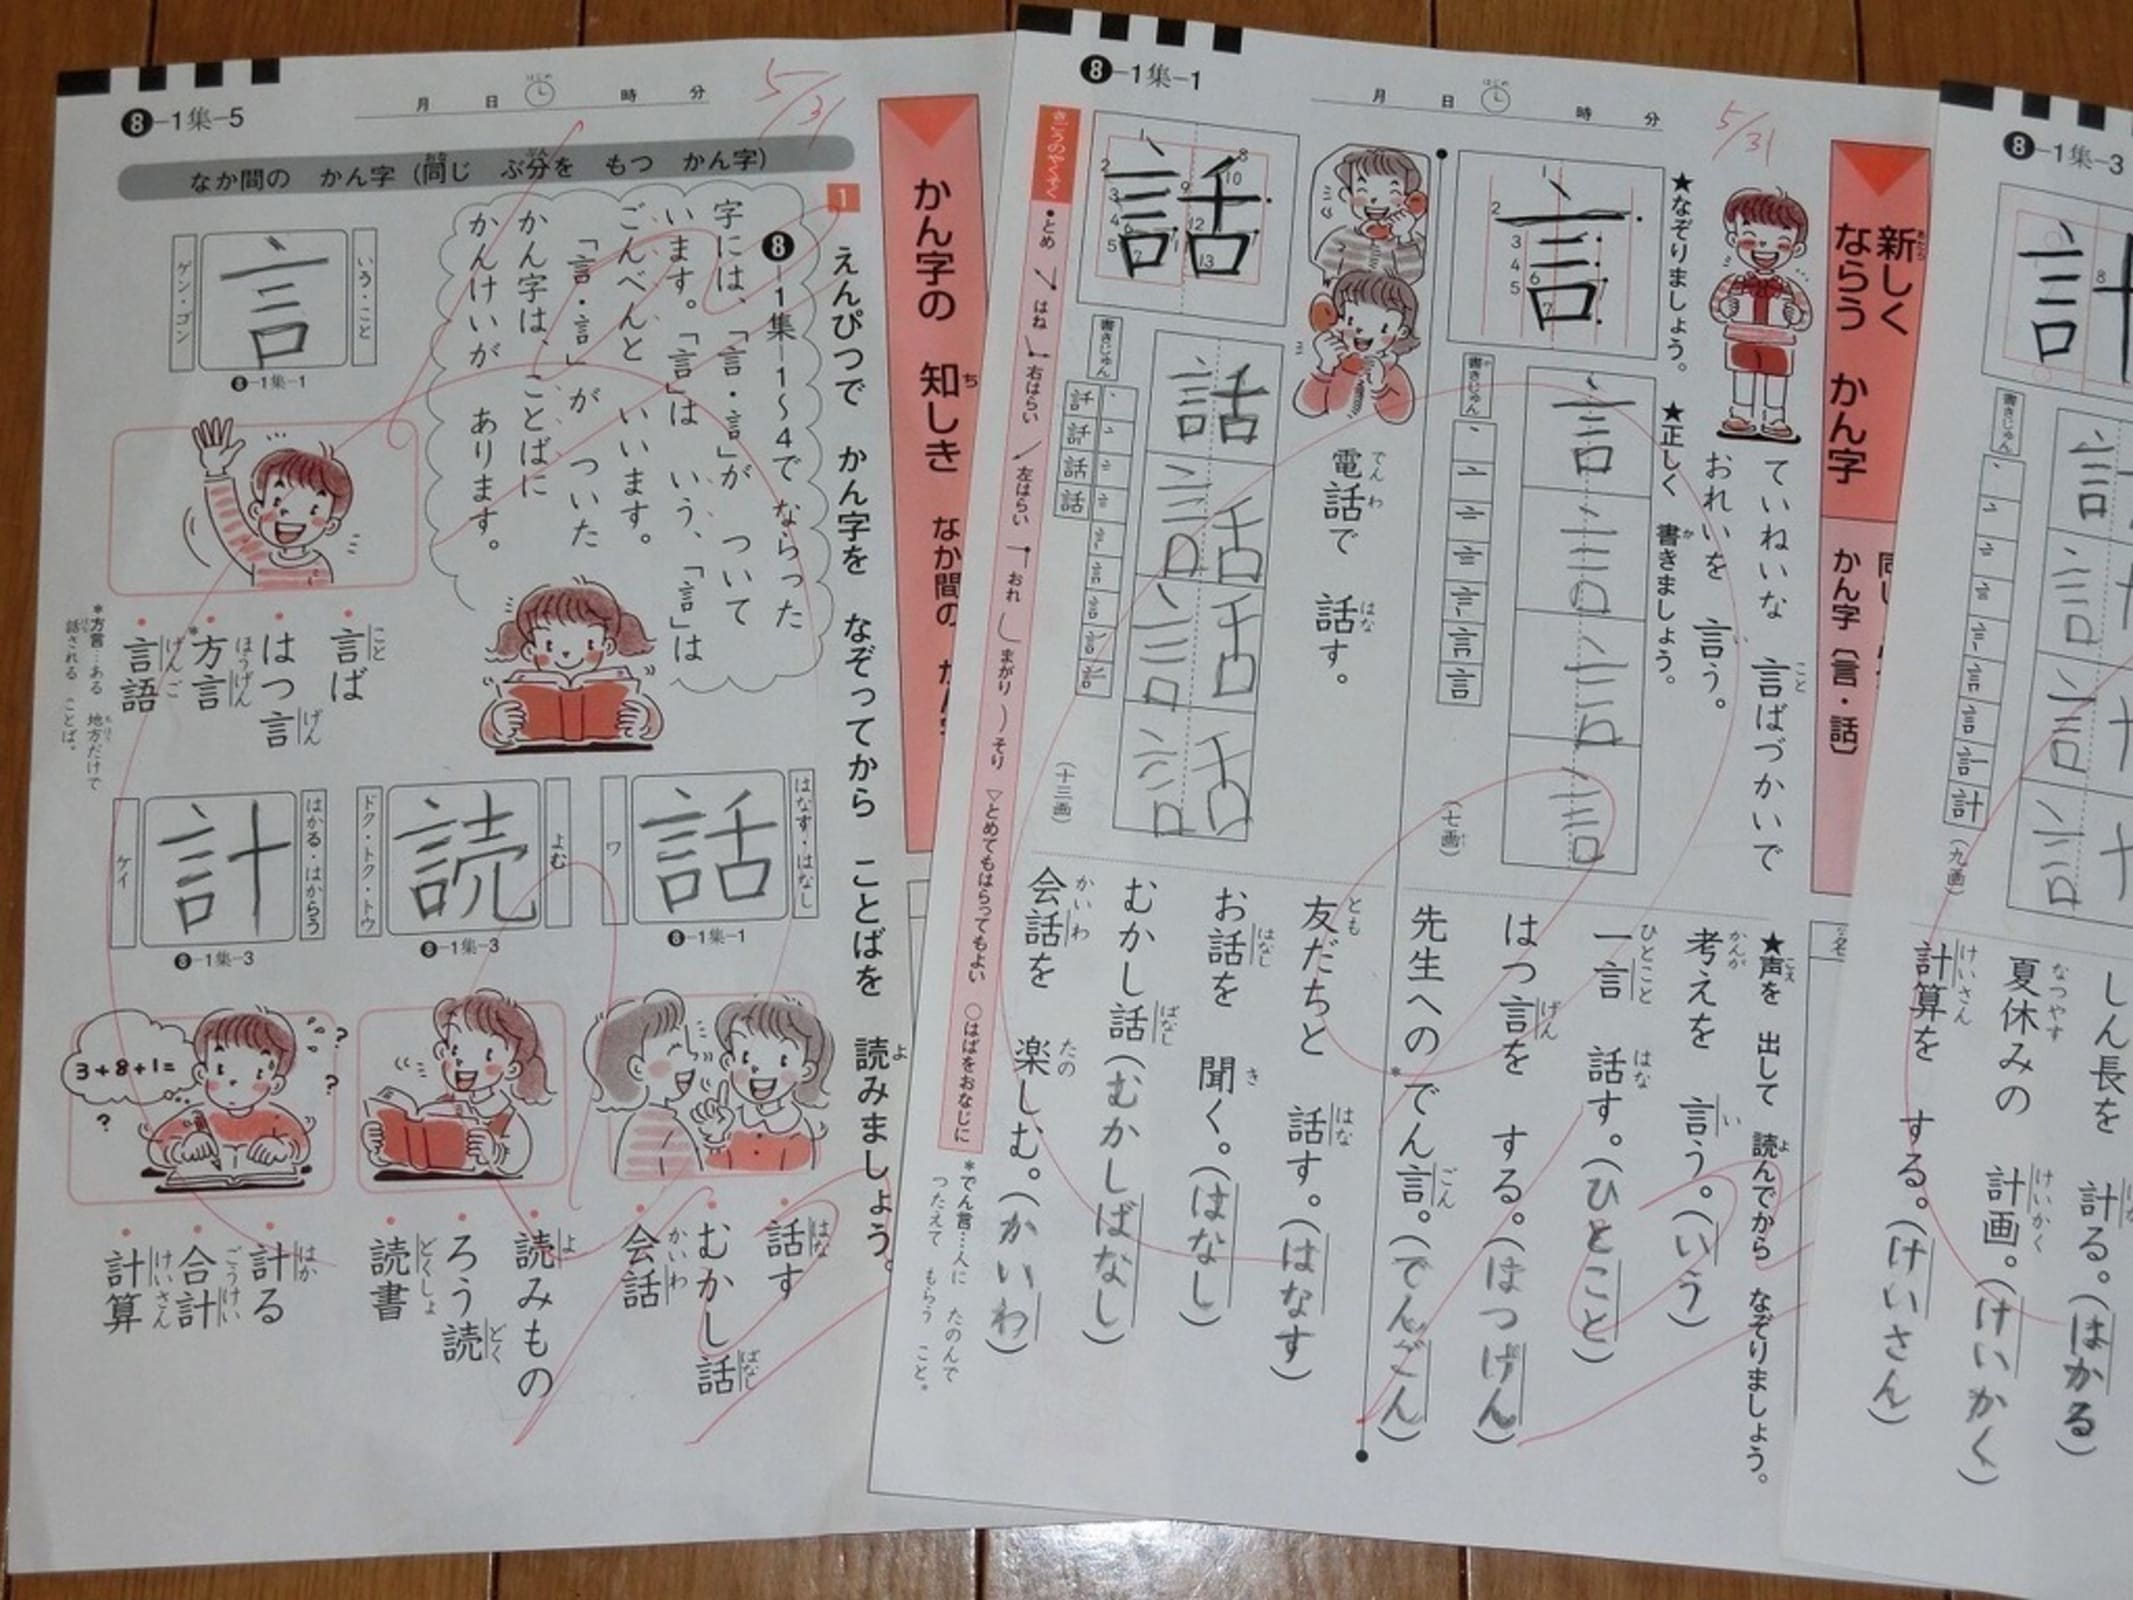 8-1集-5
月 日 はじめ 時 分
5/31
かん字の 知しき なか間の かん字
なか間の かん字 (同じ ぶ分を もつ かん字)
1
えんぴつで かん字を なぞってから ことばを 読みましょう。
8-1集-1〜4で ならった
字には、「言・訁」が ついて
います。「言」は いう、「訁」は
ごんべんと いいます。
「言・訁」が ついた
かん字は、ことばに
かんけいが あります。
いう・こと
言
ゲン・ゴン
8-1集-1
言ば
はつ言
方言
言語
*方言…ある 地方だけで
話される ことば。
はなす・はなし
話
ワ
8-1集-1
よむ
読
ドク・トク・トウ
8-1集-3
はかる・はからう
計
ケイ
8-1集-3
3+8+1=
?
?
?
話す
むかし話
会話
読みもの
ろう読
読書
計る
合計
計算
8-1集-1
月 日 はじめ 時 分
5/31
新しく ならう かん字
かん字〔言・話〕
★なぞりましょう。 ★正しく 書きましょう。
言
書きじゅん
(七画)
ていねいな 言ばづかいで
おれいを 言う。
話
書きじゅん
(十三画)
電話で 話す。
★声を 出して 読んでから なぞりましょう。
考えを 言う。(いう)
一言 話す。(ひとこと)
はつ言を する。(はつげん)
先生への *でん言。(でんごん)
友だちと 話す。(はなす)
お話を 聞く。(はなし)
むかし話(むかしばなし)
会話を 楽しむ。(かいわ)
*でん言…人に たのんで
つたえて もらう こと。
きごうのやくそく
●とめ はね 右はらい 左はらい おれ まがり そり ▽とめてもはらってもよい ○はばをおなじに
8-1集-3
書きじゅん
計
(九画)
しん長を 計る。(はかる)
夏休みの 計画。(けいかく)
計算を する。(けいさん)